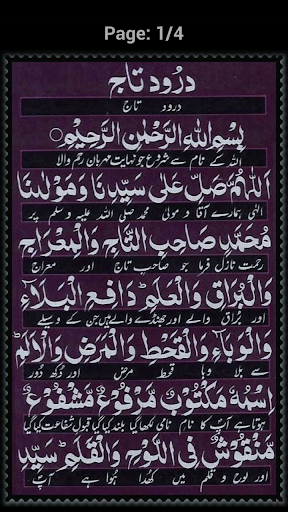 Page: 1/4
درُود تاج
درود تاج
بِسْمِ اللهِ الرَّحْمٰنِ الرَّحِيْمِ
اللہ کے نام سے شروع جو نہایت مہربان رحم والا
اَللّٰهُمَّ صَلِّ عَلٰى سَيِّدِنَا وَمَوْلٰنَا
الٰہی ہمارے آقا و مولیٰ محمد صلی اللہ علیہ و سلم پر
مُحَمَّدٍ صَاحِبِ التَّاجِ وَالْمِعْرَاجِ
رحمت نازل فرما جو صاحب تاج اور معراج
وَالْبُرَاقِ وَالْعَلَمِ ؕ دَافِعِ الْبَلَآءِ
اور براق والے اور جھنڈے والے ہیں جن کے وسیلے
وَالْوَبَآءِ وَالْقَحْطِ وَالْمَرَضِ وَالْاَلَمِ ؕ
سے بلا وبا قحط مرض اور دُکھ دُور
اِسْمُهٗ مَكْتُوْبٌ مَّرْفُوْعٌ مَّشْفُوْعٌ
ہوتا ہے آپ کا نام نامی لکھا گیا بلند کیا گیا قبول شفاعت کیا گیا
مَّنْقُوْشٌ فِى اللَّوْحِ وَالْقَلَمِ ؕ سَيِّدِ
اور لوح و قلم میں کھدا ہوا ہے آپ